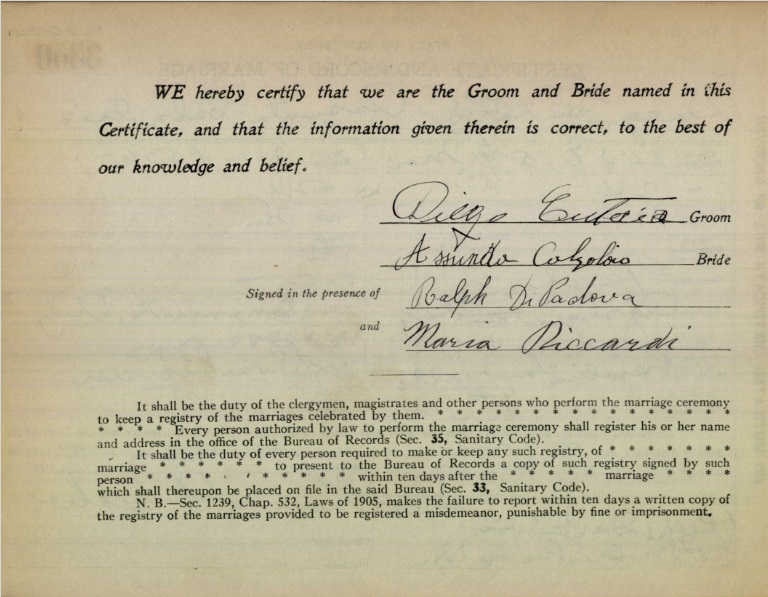 WE hereby certify that we are the Groom and Bride named in this
Certificate, and that the information given therein is correct, to the best of
our knowledge and belief.
Diego Groom
Assunta Bride
Signed in the presence of Ralph DiPadova
and Maria Riccardi
It shall be the duty of the clergymen, magistrates and other persons who perform the marriage ceremony
to keep a registry of the marriages celebrated by them. * * * * * * * * * * * * * * * *
* * * * Every person authorized by law to perform the marriage ceremony shall register his or her name
and address in the office of the Bureau of Records (Sec. 35, Sanitary Code).
It shall be the duty of every person required to make or keep any such registry, of * * * * * *
marriage * * * * * * to present to the Bureau of Records a copy of such registry signed by such
person * * * * * * * * * * within ten days after the * * * * * marriage * * * *
which shall thereupon be placed on file in the said Bureau (Sec. 33, Sanitary Code).
N. B.—Sec. 1239, Chap. 532, Laws of 1905, makes the failure to report within ten days a written copy of
the registry of the marriages provided to be registered a misdemeanor, punishable by fine or imprisonment.